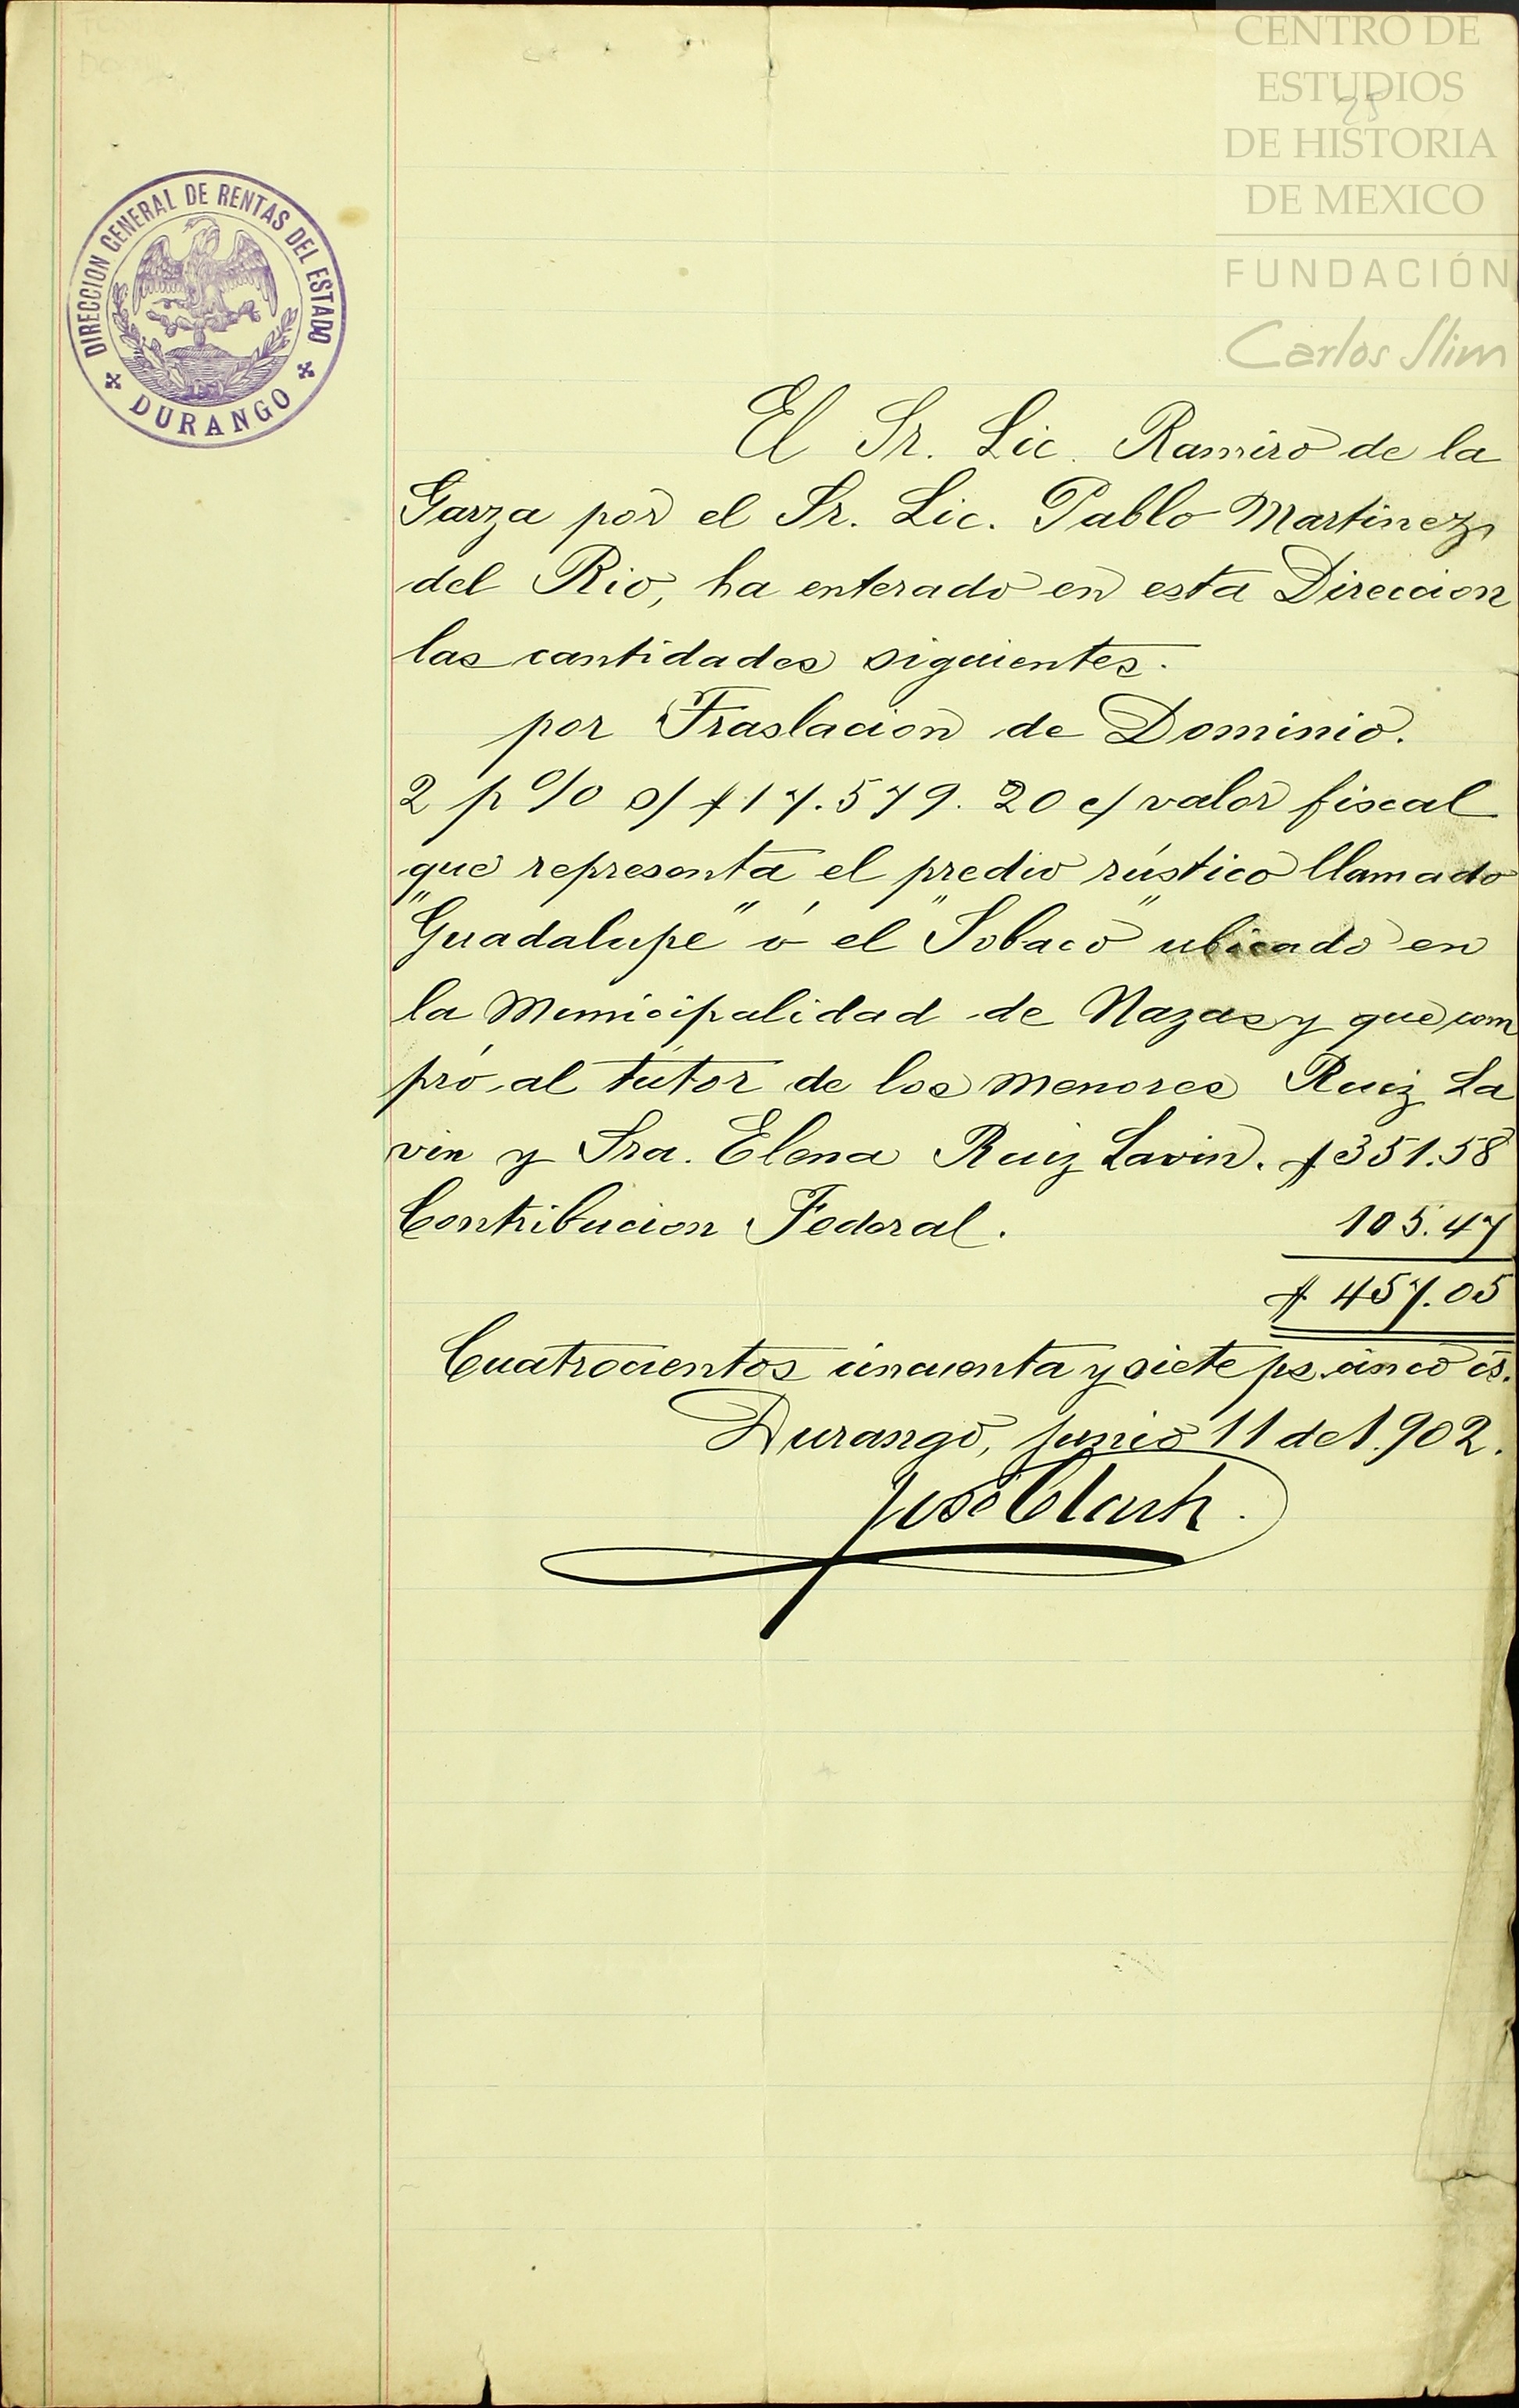 CENTRO DE
ESTUDIOS
25
DE HISTORIA
DE MEXICO
FUNDACIÓN
Carlos Slim
DIRECCION GENERAL DE RENTAS DEL ESTADO
DURANGO
El Sr. Lic. Ramiro de la
Garza por el Sr. Lic. Pablo Martinez
del Rio, ha enterado en esta Direccion
las cantidades siguientes.
por Traslacion de Dominio.
2 p % s/ $17.579.20 c/ valor fiscal
que representa el predio rústico llamado
"Guadalupe" ó el "Sobaco" ubicado en
la Municipalidad de Nazas y que com
pró al tútor de los menores Ruiz La
vin y Sra. Elena Ruiz Lavin. $351.58
Contribucion Federal. 105.47
$ 457.05
Cuatrocientos cincuenta y siete ps. cinco cs.
Durango, junio 11 de 1.902.
José Clark.